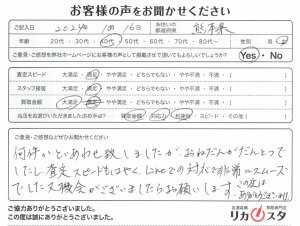 お客様の声をお聞かせください
ご記入日 2024年 1月16日 お住いの都道府県 熊本県
年齢 20代・30代・40代・50代・60代・70代・80代～ 男・女
ご意見・ご感想を弊社ホームページにお客様の声として掲載させて頂いてもよろしいでしょうか? Yes・No
査定スピード 大満足・満足・やや満足・どちらでもない・やや不満・不満 ( )
スタッフ接客 大満足・満足・やや満足・どちらでもない・やや不満・不満 ( )
買取金額 大満足・満足・やや満足・どちらでもない・やや不満・不満 ( )
当店をお選びいただきました決め手は? 買取金額・対応力・利便性・スピード・その他( )
ご意見・ご感想などぜひお聞かせください。
何件かといあわせ致しましたがおねだんがだんとつで
したし査定スピードもはやくLineでの対応で非常にスムーズ
でした 又機会がございましたらお願いします。この度は
ありがとうございました
ご協力ありがとうございました。
この度は誠にありがとうございました。
お酒高価 買取専門店
リカスタ